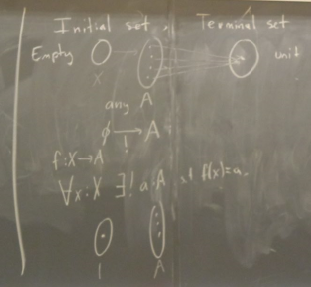 Initial set, Terminal set
Empty unit
X
any A
∅ → A
!
f: X → A
∀x:X ∃! a:A st f(x)=a.
1 A